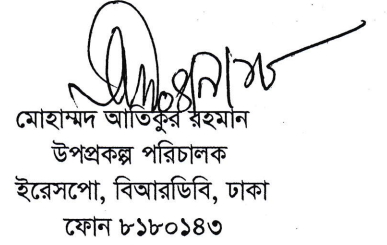 মোহাম্মদ আতিকুর রহমান
উপপ্রকল্প পরিচালক
ইরেসপো, বিআরডিবি, ঢাকা
ফোন ৮১৮০১৪৩